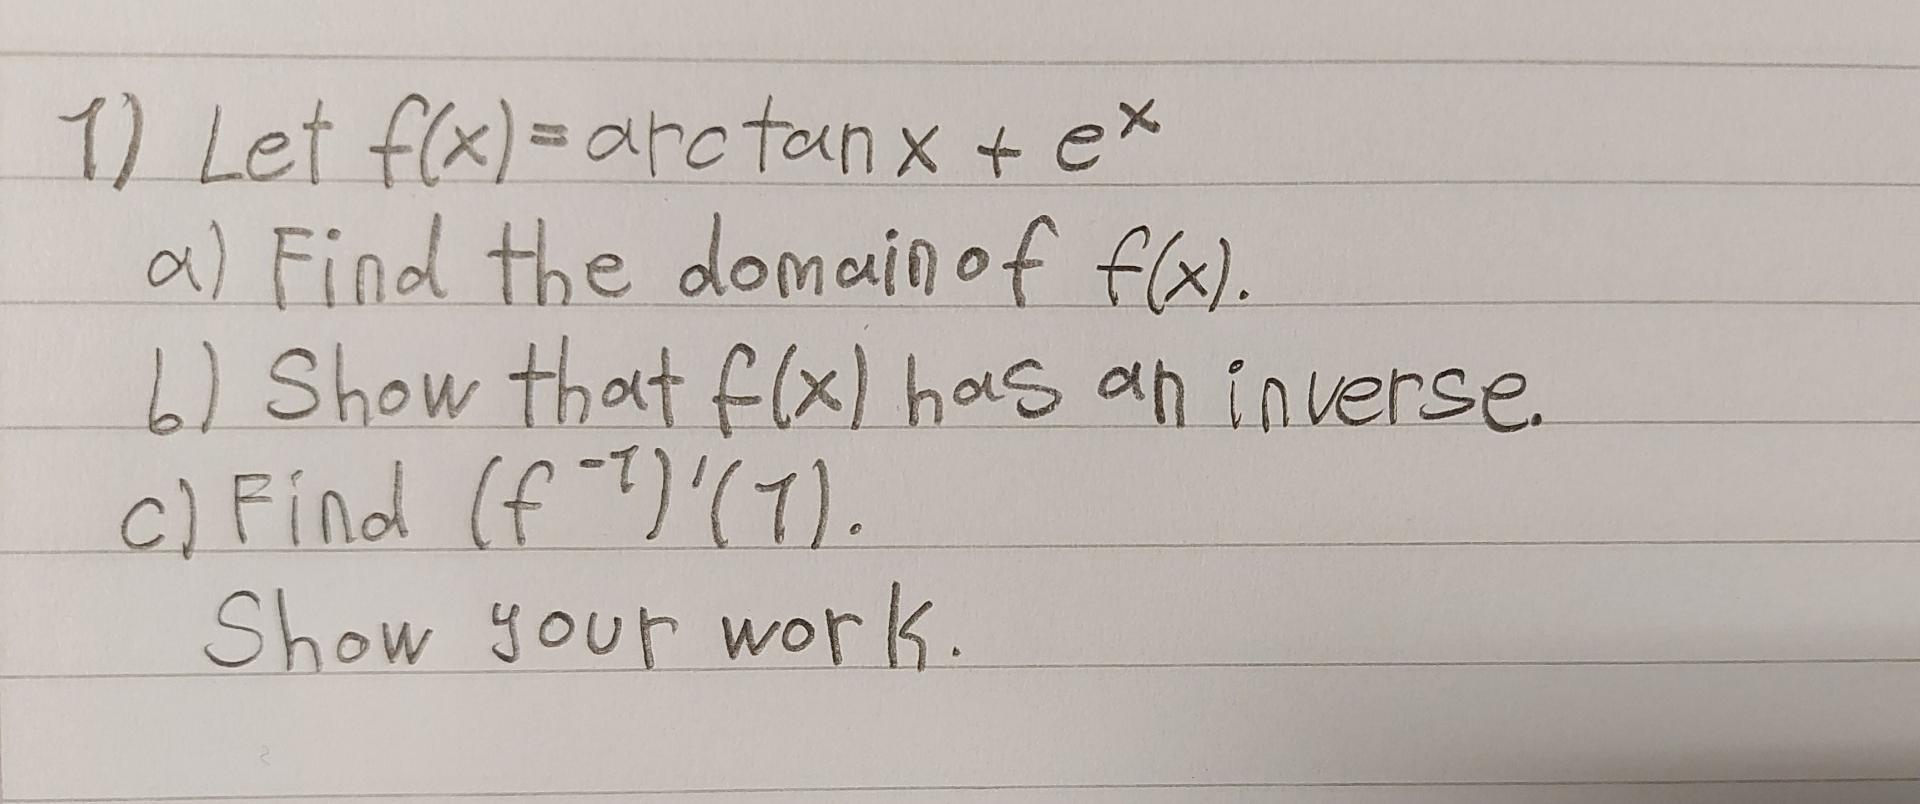 1) Let f(x)=arctanx + eˣ
a) Find the domain of f(x).
b) Show that f(x) has an inverse.
c) Find (f⁻¹)'(1).
Show your work.